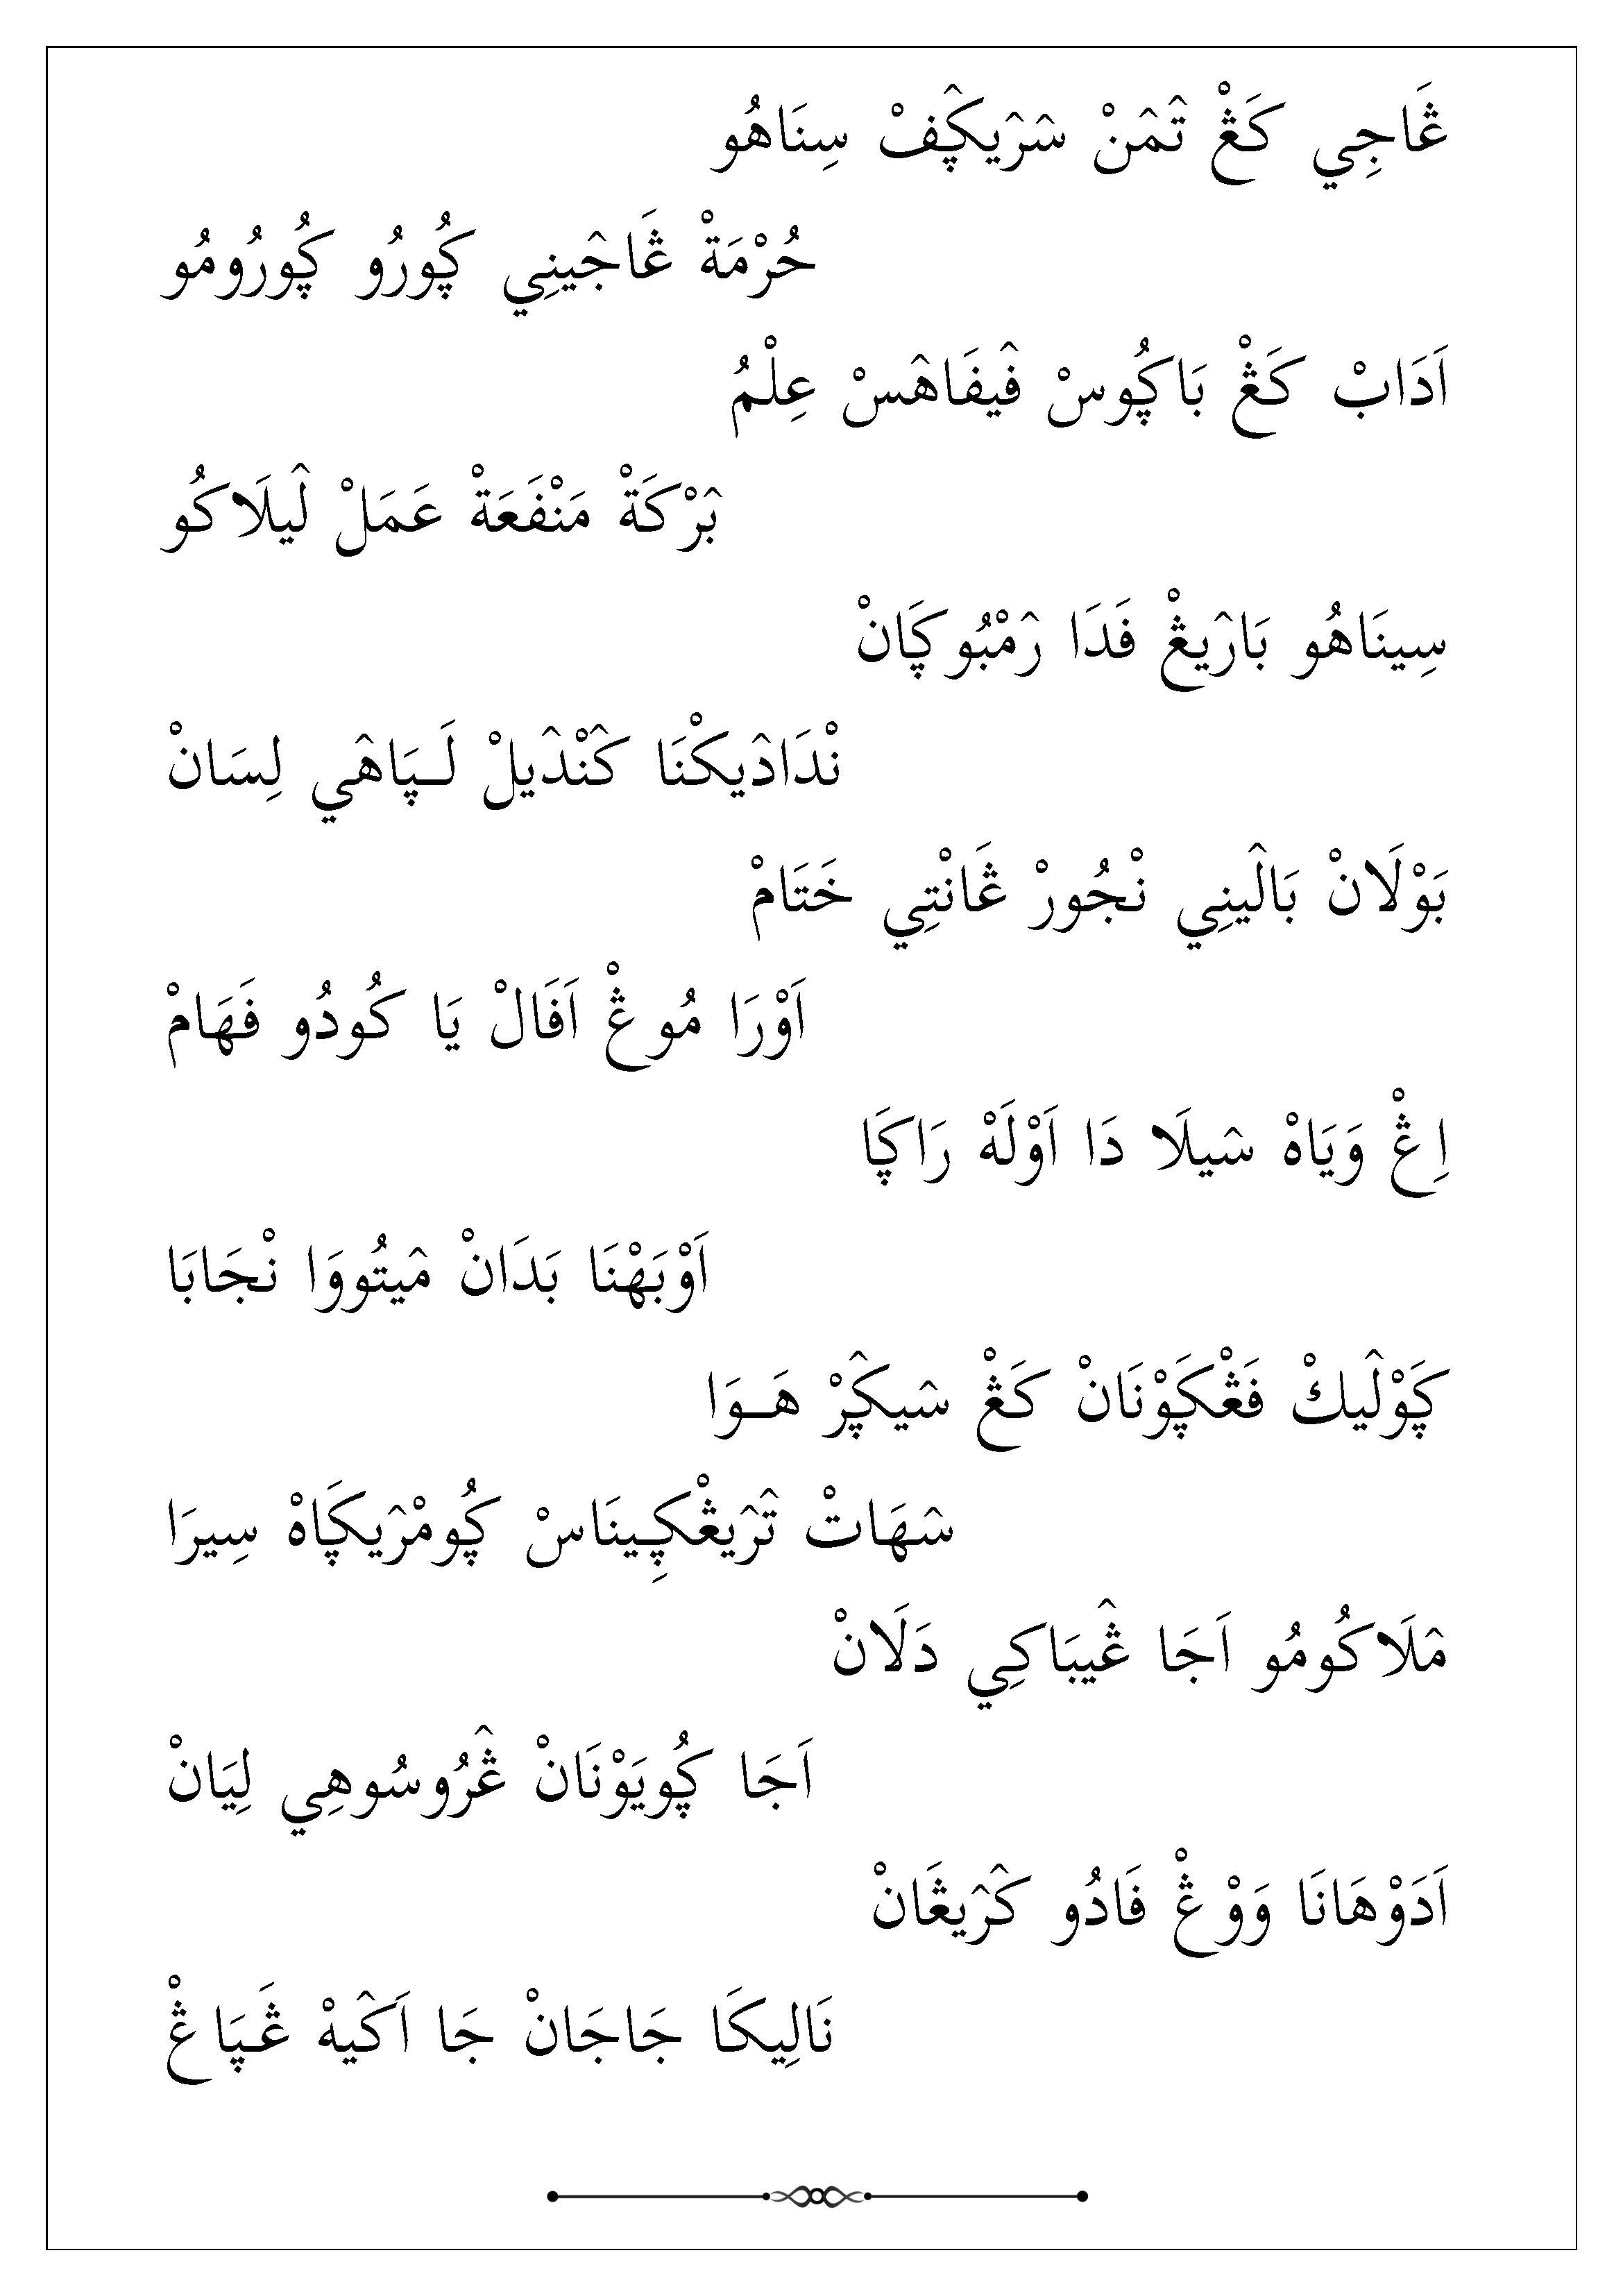 ڠَاجِي كَڠْ تٓمٓنْ سٓرٓيكٓڮفْ سِنَاهُو
حُرْمَةْ ڠَاجٓينِي ڮُورُو ڮُورُومُو
اَدَابْ كَڠْ بَاڮُوسْ فٓيفَاهٓسْ عِلْمُ
بٓرْكَةْ مَنْفَعَةْ عَمَلْ لٓيلَاكُو
سِينَاهُو بَارٓيڠْ فَدَا رٓمْبُوڮَانْ
نْدَادٓيكْنَا كٓنْدٓيلْ لَــڽَاهٓي لِسَانْ
بَوْلَانْ بَالٓينِي نْجُورْ ڠَانْتِي خَتَامْ
اَوْرَا مُوڠْ اَفَالْ يَا كُودُو فَهَامْ
اِڠْ وَيَاهْ سٓيلَا دَا اَوْلَهْ رَاڮَا
اَوْبَهْنَا بَدَانْ مٓيتُووَا نْجَابَا
ڮَوْلٓيكْ فَڠْڮَوْنَانْ كَڠْ سٓيڮٓرْ هَــوَا
سٓهَاتْ تٓرٓيڠْڮِينَاسْ ڮُومْرٓيڮَاهْ سِيرَا
مٓلَاكُومُو اَجَا ڠٓيبَاكِي دَلَانْ
اَجَا ڮُويَوْنَانْ ڠٓرُوسُوهِي لِيَانْ
اَدَوْهَانَا وَوْڠْ فَادُو كٓرٓيڠَانْ
نَالِيكَا جَاجَانْ جَا اَكٓيهْ ڠَـڽَاڠْ